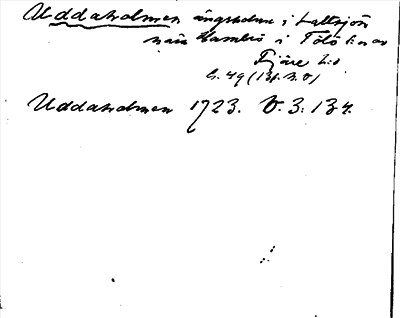 Uddaholmen ängsholme i Lallsjön
nära Hambö i Tölö sn av
Fjäre h:d
G. 49 (131. N. O)
Uddaholmen 1723. V. 3: 134.